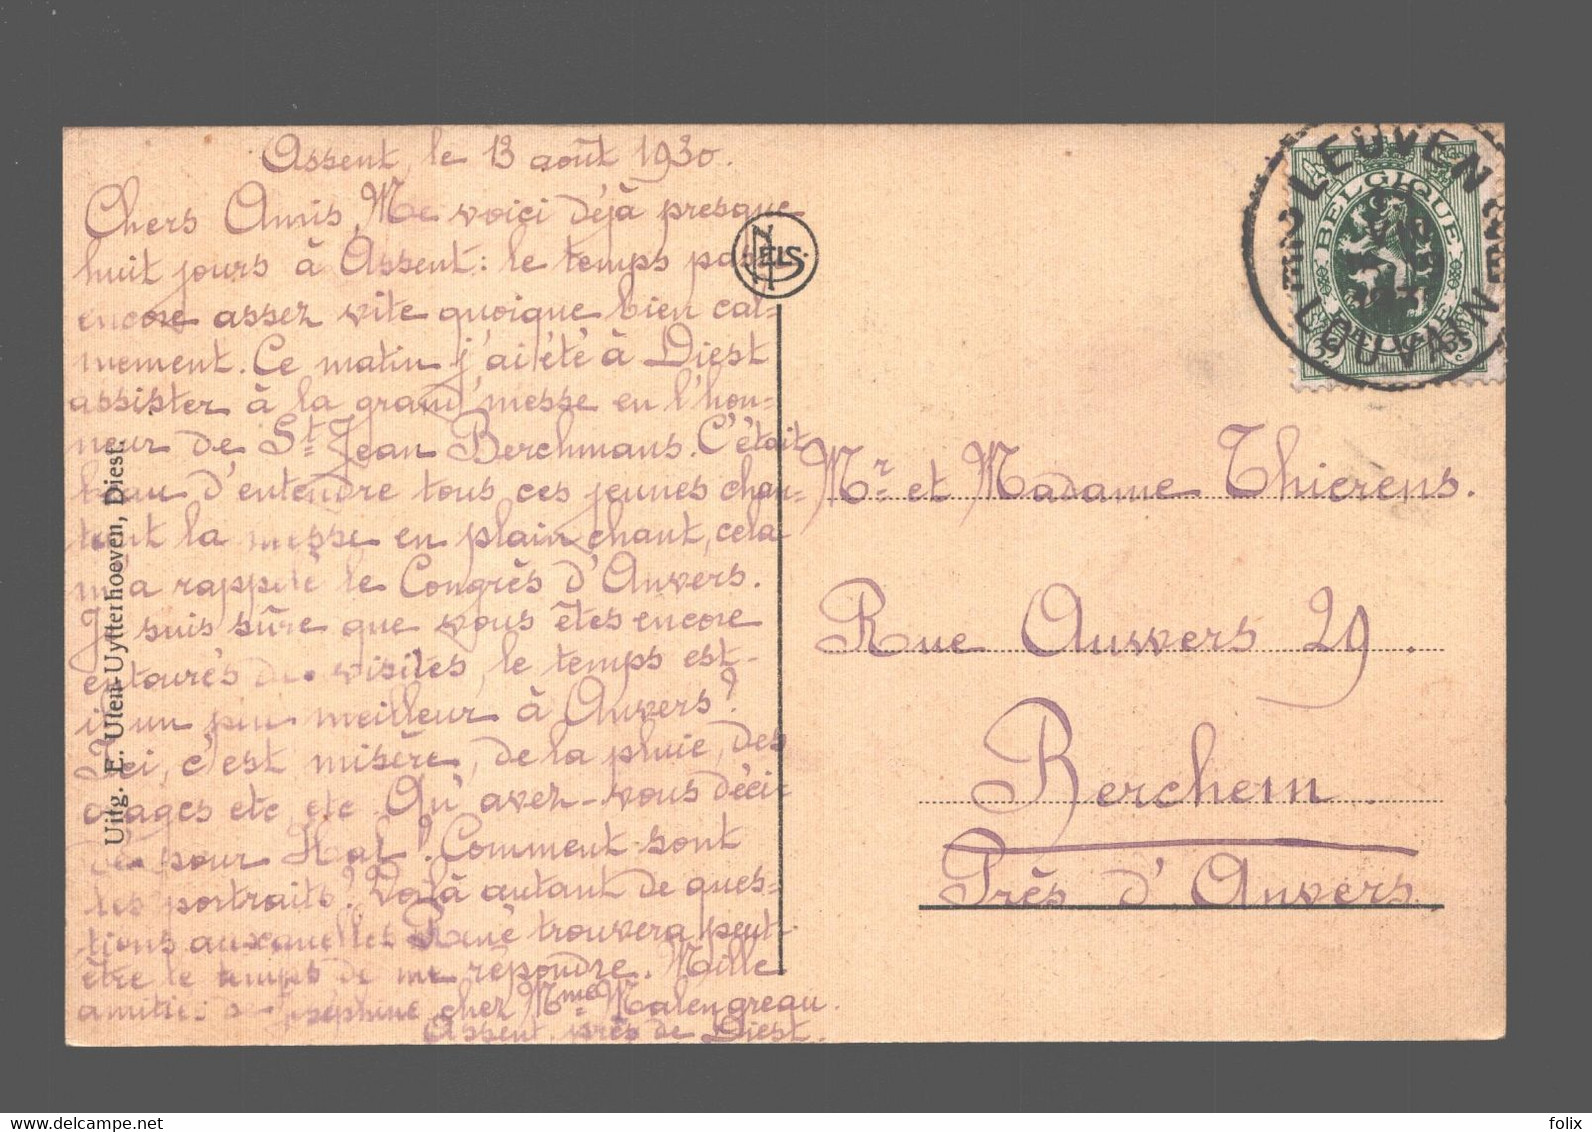 Assent, le 13 août 1930.
Chers Amis, Me voici déjà presque
huit jours à Assent: le temps passe
encore assez vite quoique bien cal-
mement. Ce matin j'ai été à Diest
assister à la grand'messe en l'hon-
neur de St Jean Berchmans. C'était
beau d'entendre tous ces jeunes chan-
tant la messe en plain chant, cela
m'a rappelé le Congrès d'Anvers.
Je suis sûre que vous êtes encore
entourés de visites, le temps est-
il un peu meilleur à Anvers?
Ici, c'est misère, de la pluie, des
orages etc etc. Qu'avez-vous déci-
dé pour Hal? Comment sont
les portraits? Voilà autant de ques-
tions auxquelles René trouvera peut-
être le temps de me répondre. Mille
amitiés de Joséphine chez Mme Malengreau.
Assent près de Diest.
Uitg. E. Ulen-Uytterhoeven, Diest.
NELS
LEUVEN
LOUVAIN
BELGIQUE
Mr et Madame Thierens.
Rue Anvers 29.
Berchem.
Près d'Anvers
www.delcampe.net
folix